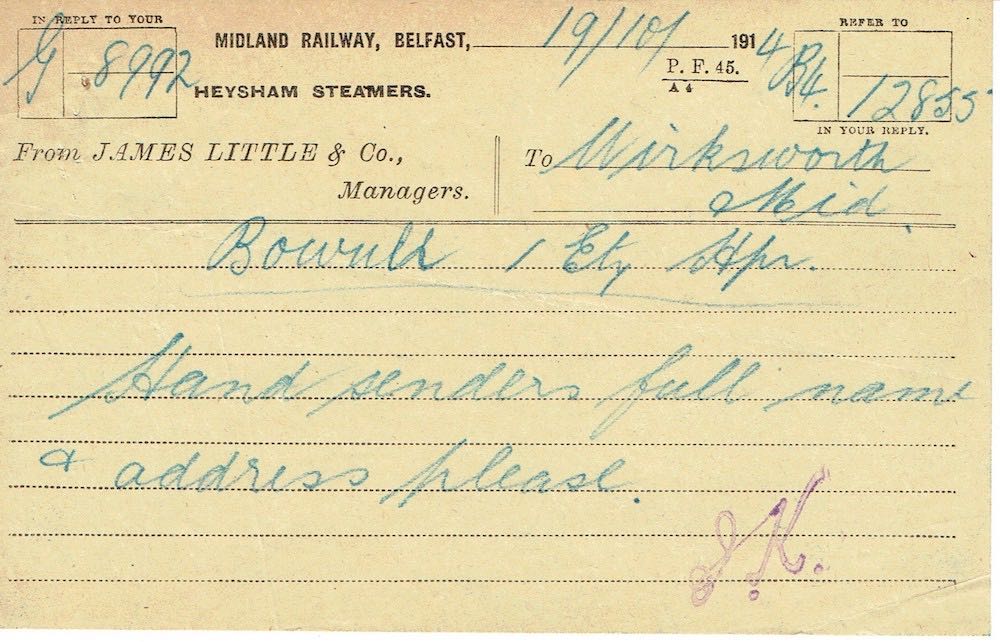 IN REPLY TO YOUR
G 8992
MIDLAND RAILWAY, BELFAST, 19/10/ 1914
REFER TO
B4. 12855
P. F. 45.
A 4
HEYSHAM STEAMERS.
IN YOUR REPLY.
From JAMES LITTLE & Co.,
Managers.
To Wirksworth
Mid
1 Ety Hpr.
Hand senders full name
& address please.
J K.